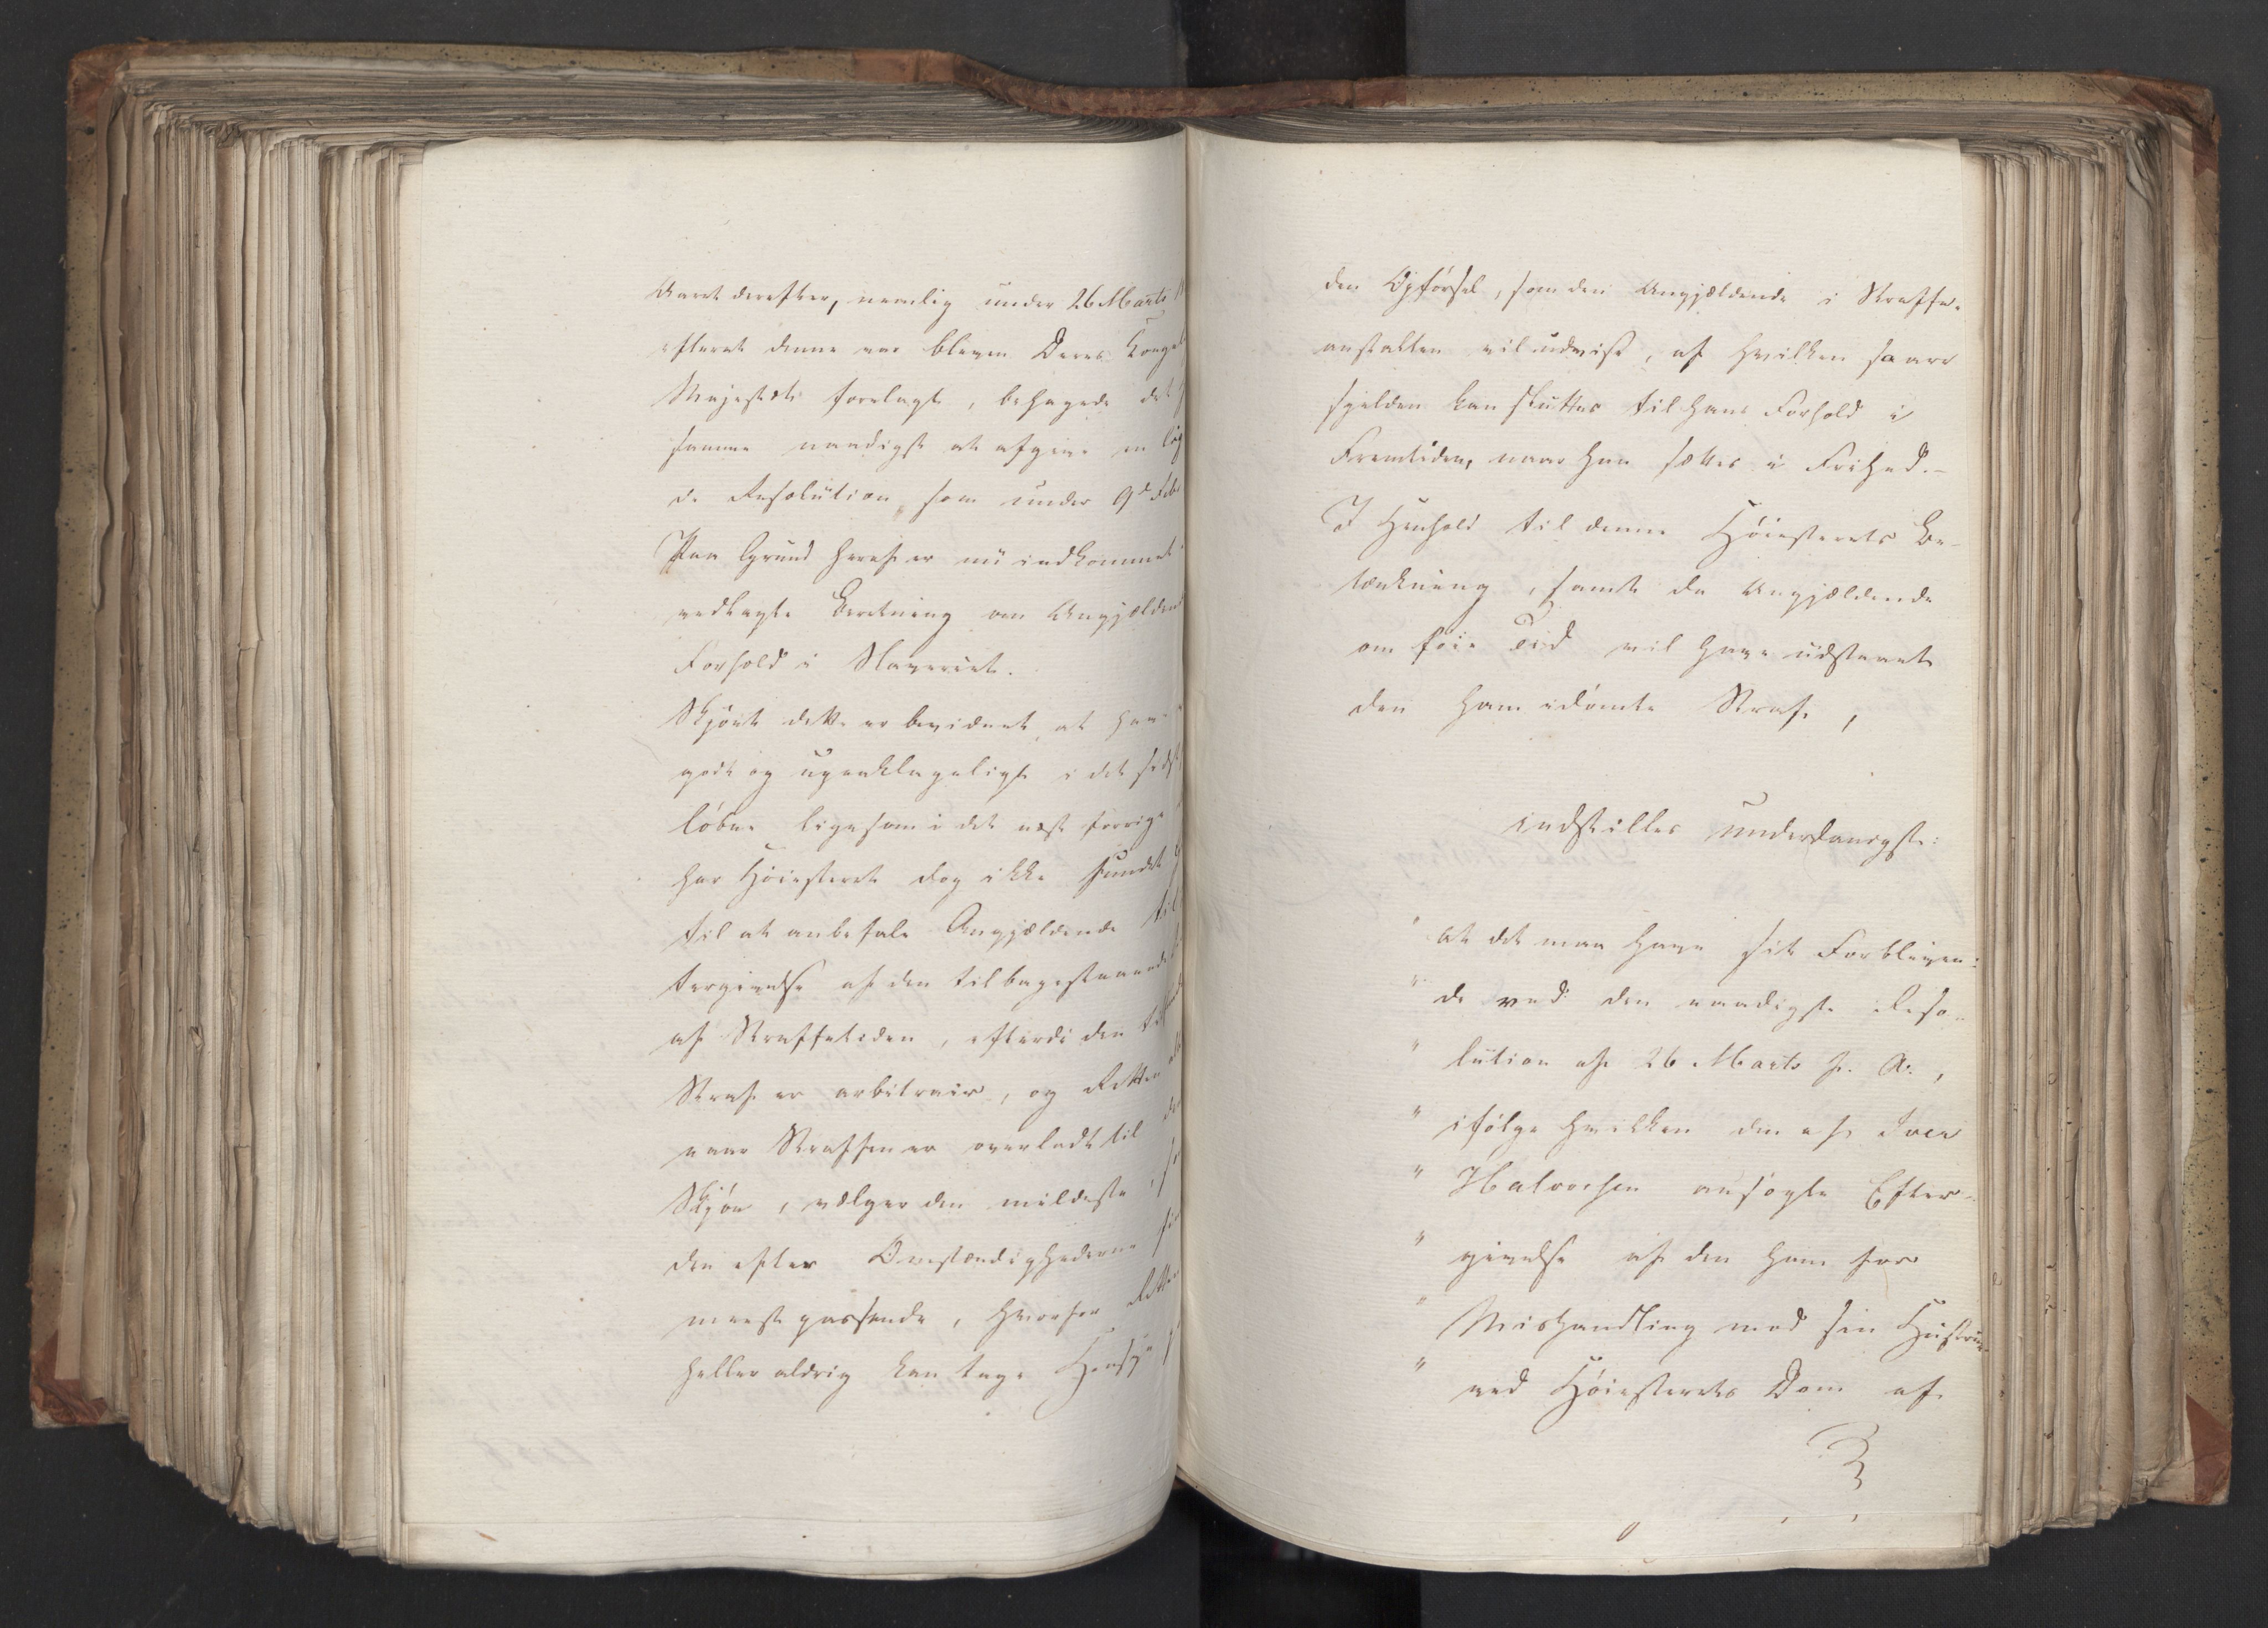 Aaret derefter, nemlig under 26 Marts
efterat denne var bleven Deres Kongel
Majestæt forelagt, behagede det
samme naadigst at afgive en lig
de Resolution, som under 9d Feb
Paa Grund heraf er nu indkommet
vedlagte Beretning om Angjælden
Forhold i Slaveriet.
Skjönt dette er bevidnet at have
godt og upaaklageligt i det sidst
löbne ligesom i det næst forrige
har Höiesteret dog ikke fundet
til at anbefale Angjældende til
tergivelse af den tilbagestaaende
af Straffetiden, efterdi den
Straf er arbitrair, og Retten
naar Straffen er overladt til
Skjön, vælger den mildeste,
den efter Omstændighederne
meest passende, hvorfor Retten
heller aldrig kan tage Hensyn
den Opförsel, som den Angjældende i Straffe-
anstalten vil udvise, af hvilken saare
sjelden kan sluttes til hans Forhold i
Fremtiden, naar han sættes i Frihed.-
I Henhold til denne Höiesterets Be-
tænkning, samt da Angjældende
om föie Tid vil have udstaaet
den ham idömte Straf,
indstilles underdanigst:
" at det maa have sit Forbliven:
" de ved den naadigste Reso-
" lution af 26 Marts f. A.,
" ifölge hvilken den af Iver
" Halvorsen ansögte Efter-
" givelse af den ham for
" Mishandling mod sin Hustrue
" ved Höiesterets Dom af